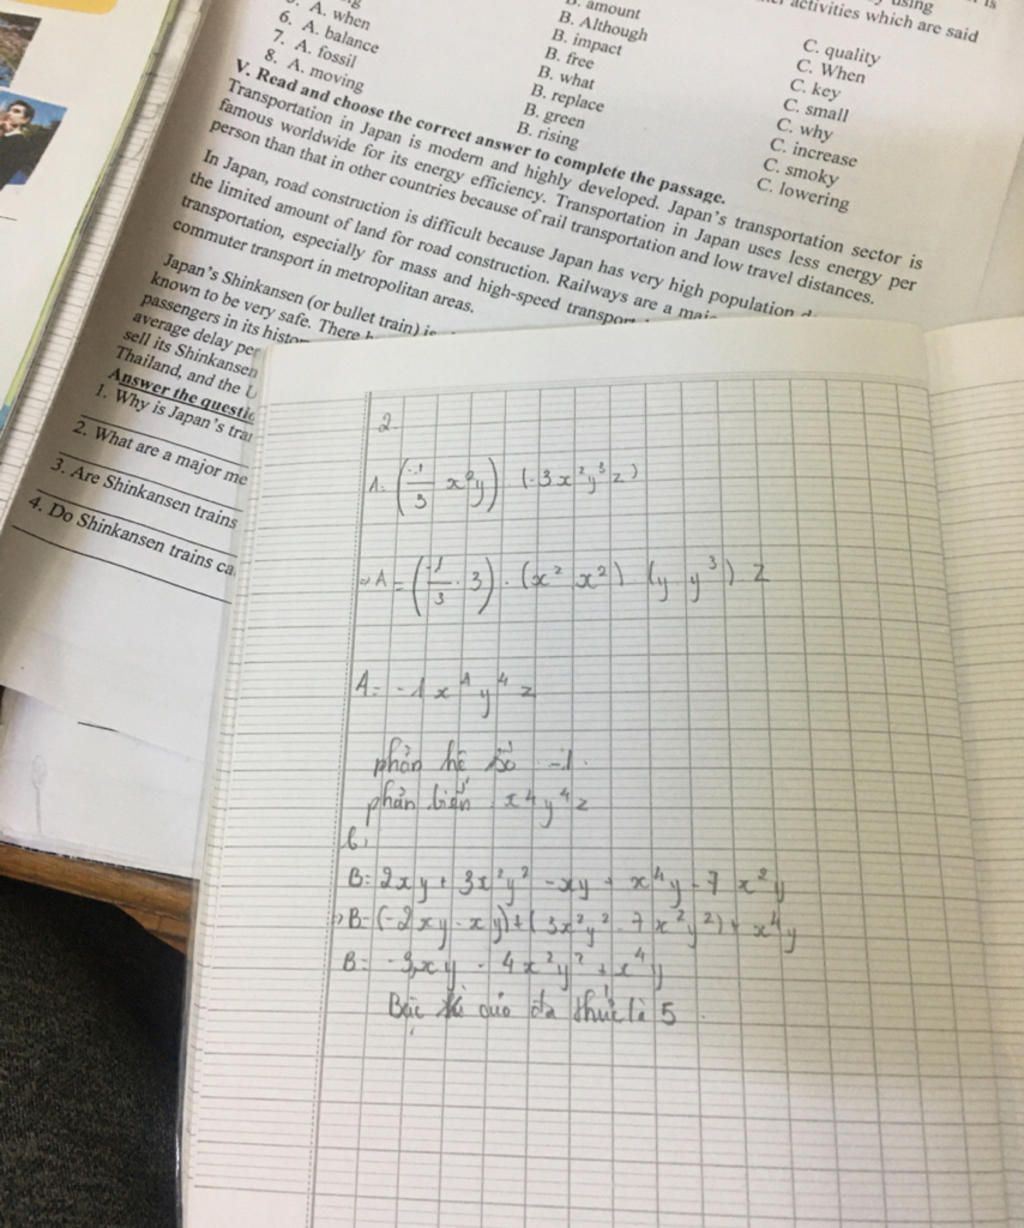 using
activities which are said
A. when
6. A. balance
7. A. fossil
8. A. moving
B. amount
B. Although
B. impact
B. free
B. what
B. replace
B. green
B. rising
C. quality
C. When
C. key
C. small
C. why
C. increase
C. smoky
C. lowering
V. Read and choose the correct answer to complete the passage.
Transportation in Japan is modern and highly developed. Japan's transportation sector is
famous worldwide for its energy efficiency. Transportation in Japan uses less energy per
person than that in other countries because of rail transportation and low travel distances.
In Japan, road construction is difficult because Japan has very high population
the limited amount of land for road construction. Railways are a
transportation, especially for mass and high-speed
commuter transport in metropolitan areas.
Japan's Shinkansen (or bullet train)
known to be very safe. There
passengers in its
average delay
sell its Shinkansen
Thailand, and the
Answer the
1. Why is Japan's
2. What are a major
3. Are Shinkansen trains
4. Do Shinkansen trains
2.
A = (-1/3 x²y) . (-3x²y³z)
=> A = (-1/3 . 3) . (x² x²) (y y³) z
A = -1 x⁴ y⁴ z
phần hệ số -1.
phần biến x⁴y⁴z
b,
B = 2xy + 3x²y² - xy + x⁴y - 7x²y
=> B = (-2xy - xy) + (3x²y² - 7x²y²) + x⁴y
B = -3xy - 4x²y² + x⁴y
Bậc của đa thức là 5.